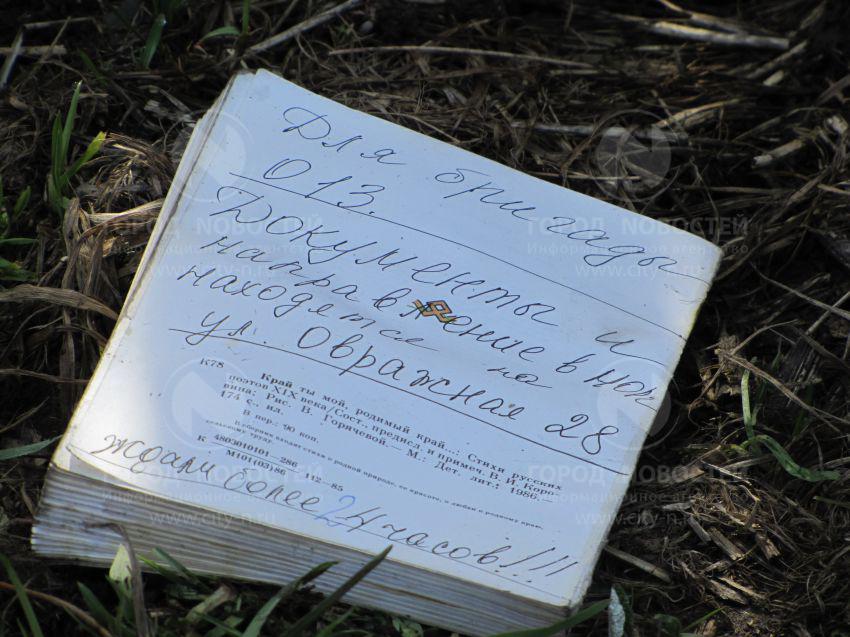 Для бригады
013.
Документы и
направление в нок
находятся на
ул. Овражная 28
К78
Край ты мой, родимый край...: Стихи русских
поэтов XIX века/Сост., предисл. и примеч. В. И. Коро-
вина; Рис. В. Горячевой.— М.: Дет. лит.; 1986.—
174 с., ил.
В пер.: 90 коп.
В сборник вошли стихи о родной природе, ее красоте, о любви к родному краю,
сельскому труду.
К 4803010101—286
М101(03)86
112—85
ждали более 24 часов!!!
ГОРОД НОВОСТЕЙ
Информационное агентство
www.city-n.ru
ГОРОД НОВОСТЕЙ
Информационное агентство
www.city-n.ru
ГОРОД НОВОСТЕЙ
Информационное агентство
www.city-n.ru
ГОРОД НОВОСТЕЙ
Информационное агентство
www.city-n.ru